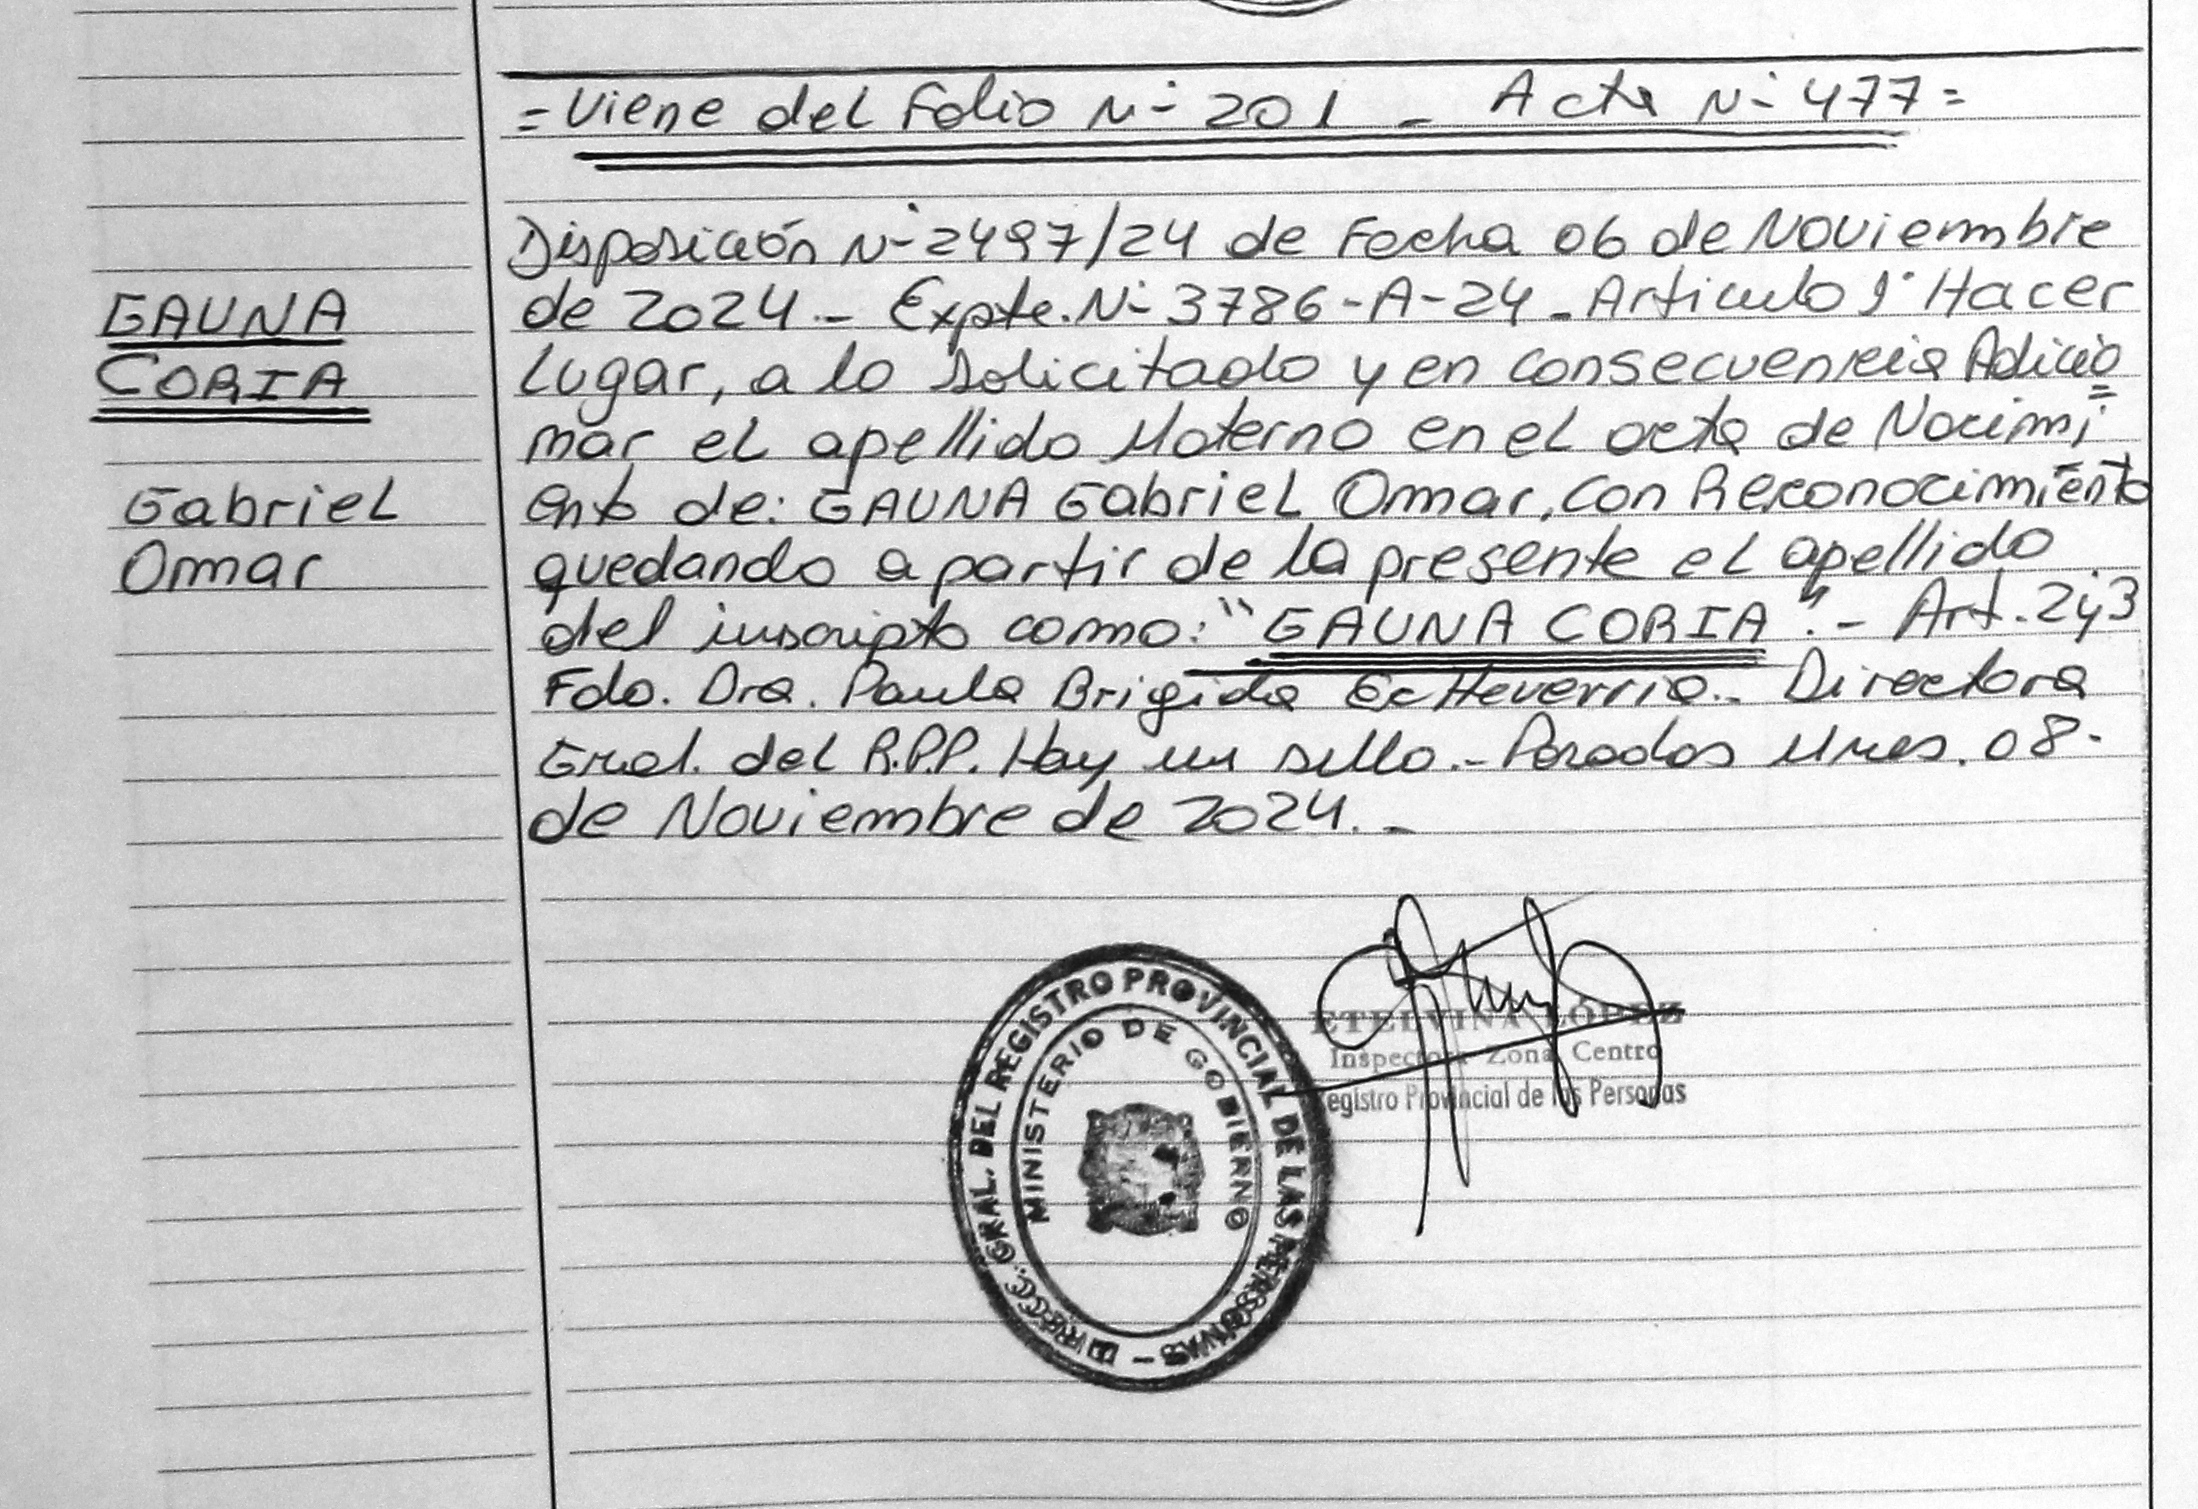 = Viene del Folio N- 201 - Acta N- 477 =
GAUNA
CORIA
Gabriel
Omar
Disposición N- 2497/24 de Fecha 06 de Noviembre
de 2024.- Expte. N- 3786-A-24 - Articulo 1° Hacer
Lugar, a lo solicitado y en consecuencia Adicio=
nar el apellido Materno en el acta de Nacimi=
ento de: GAUNA Gabriel Omar, con Reconocimiento
quedando a partir de la presente el apellido
del inscripto como: "GAUNA CORIA".- Art. 2y3
Fdo. Dra. Paula Brigida Echeverria.- Directora
Gral. del R.P.P. Hay un sello.- Posadas Mnes. 08-
de Noviembre de 2024.-
ETELVINA LÓPEZ
Inspectora Zona Centro
Registro Provincial de las Personas
DIRECC. GRAL. DEL REGISTRO PROVINCIAL DE LAS PERSONAS -
MINISTERIO DE GOBIERNO